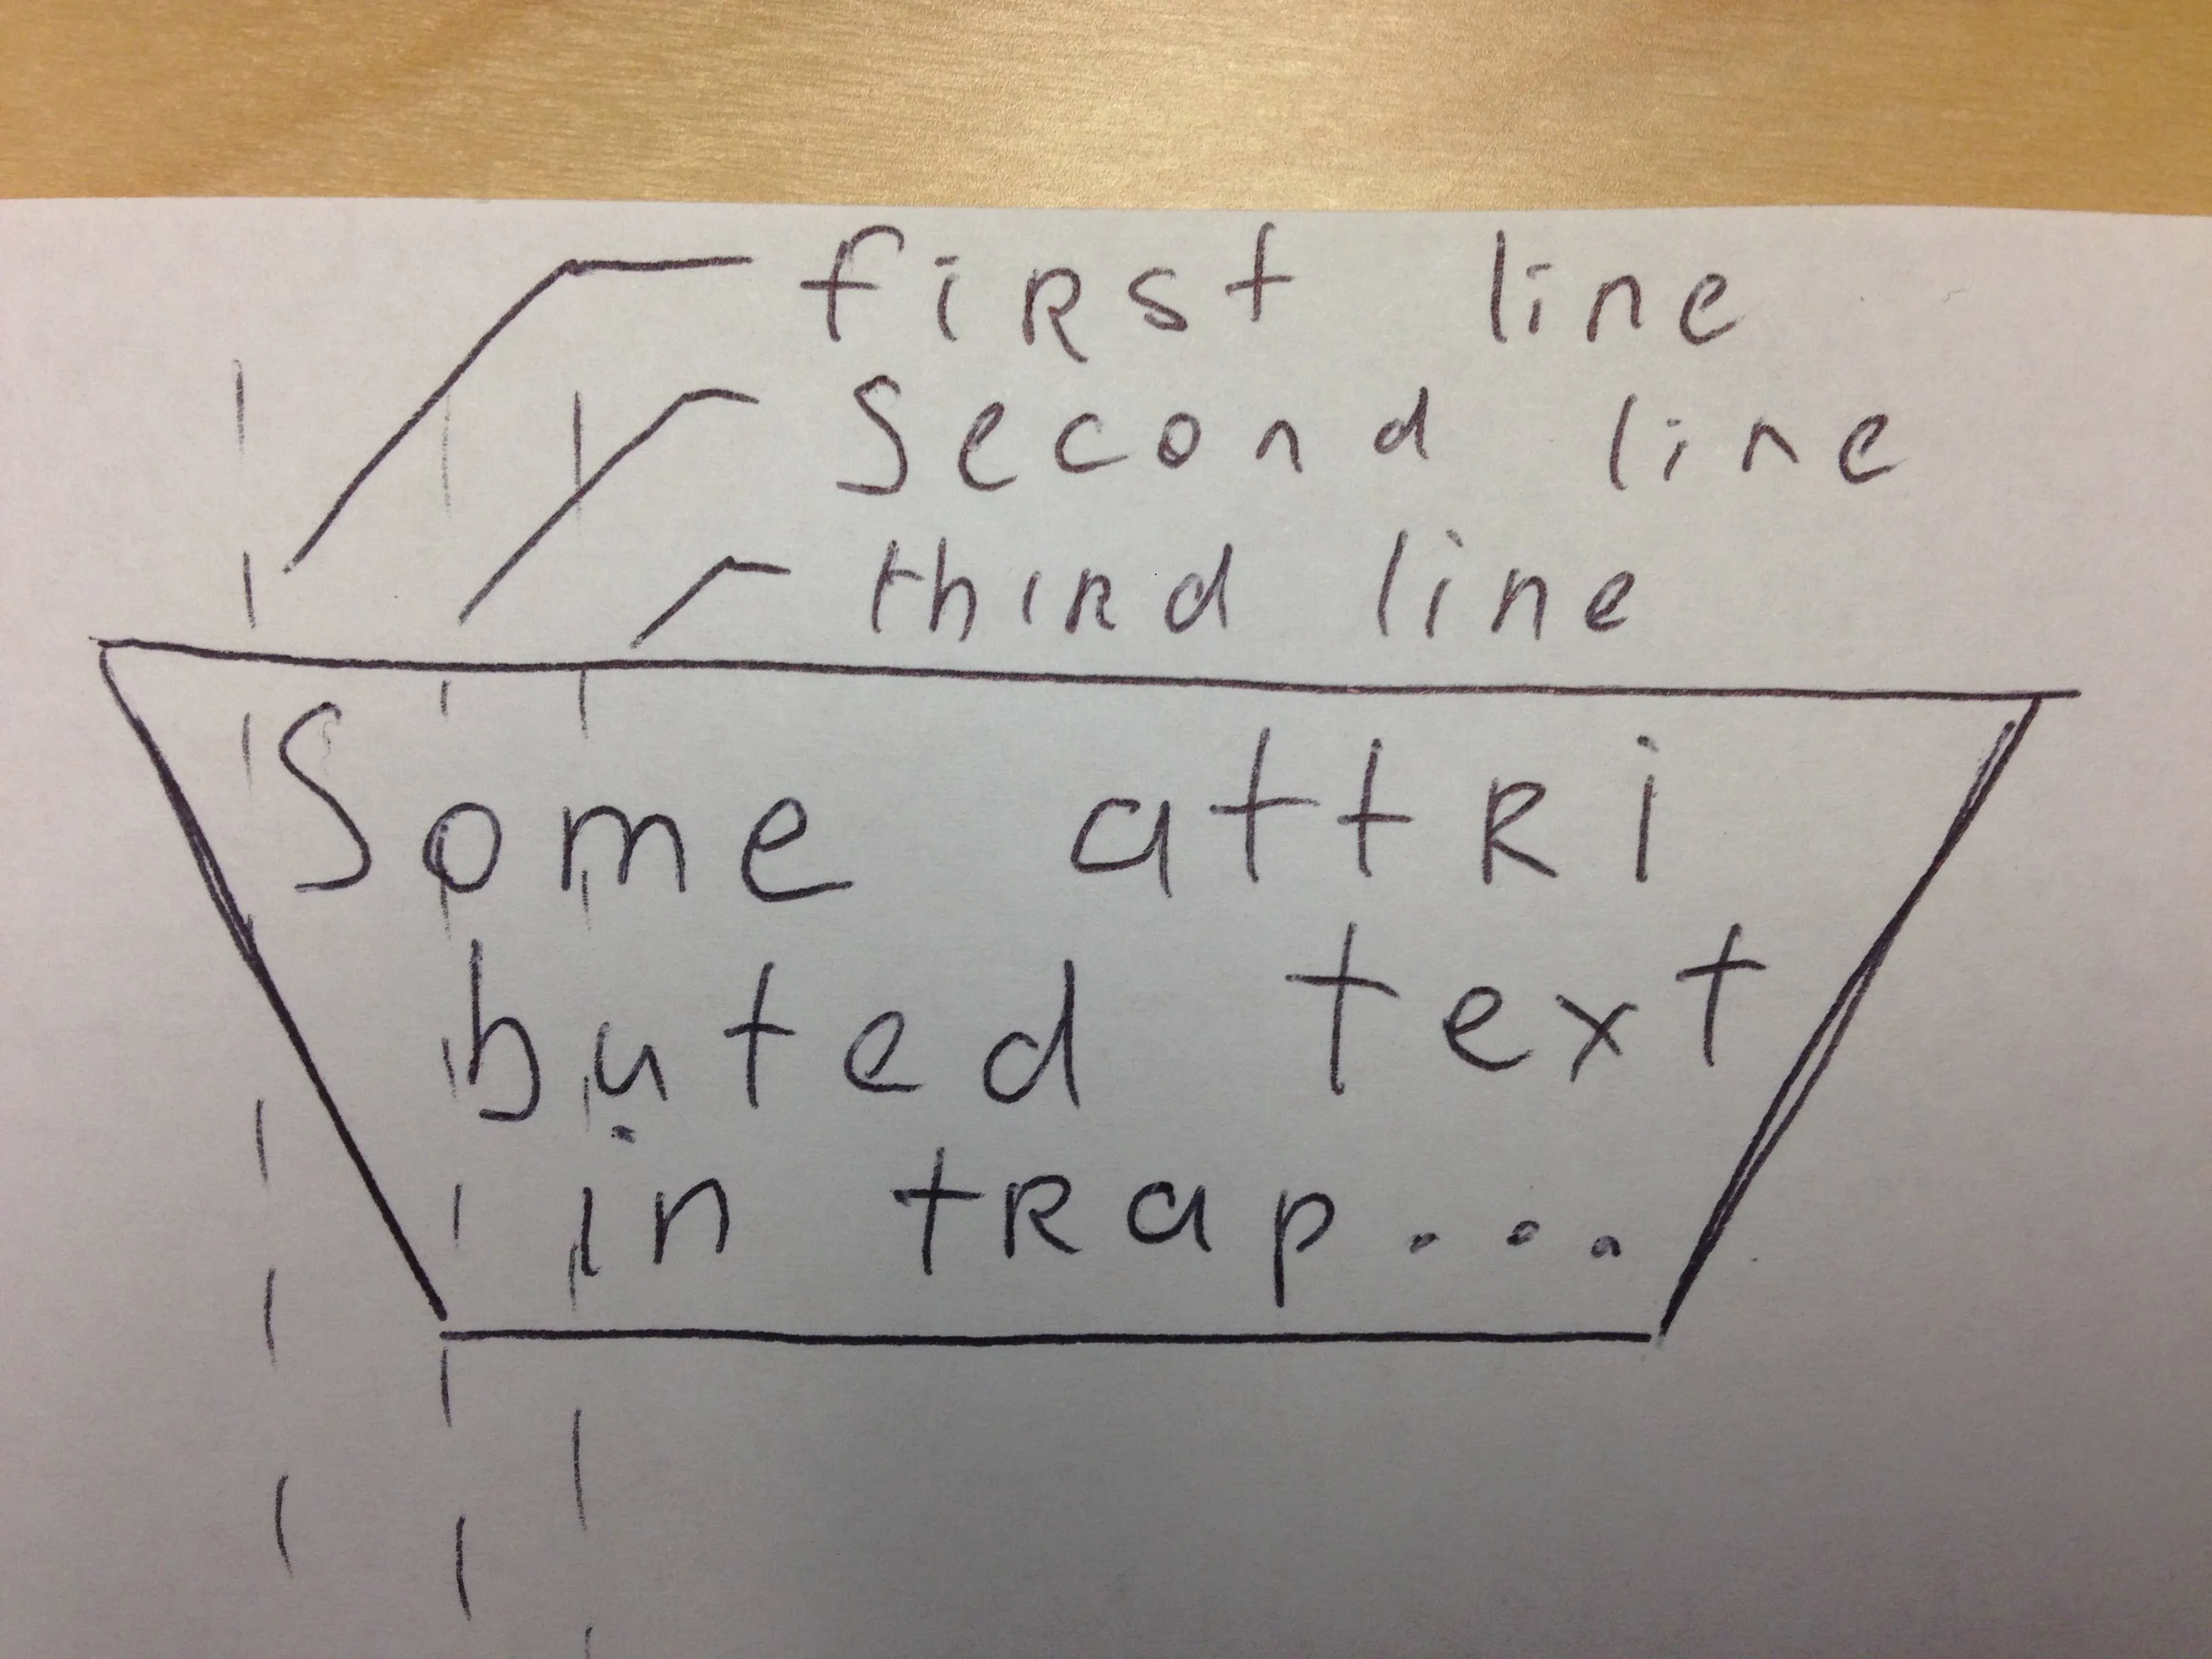 first line
Second line
third line
Some attri
buted text
in trap...